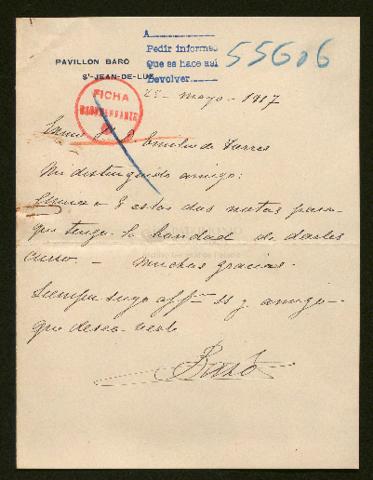 A
Pedir informes
Que se hace así
Devolver
55606
PAVILLON BARO
St-JEAN-DE-LUZ
FICHA
25 - mayo - 1917
Excmo Sr D Emilio de Torres
Mi distinguido amigo:
a V estas dos notas para
que tenga la bondad de darles
curso. - Muchas gracias.
Siempre suyo affmo ss y amigo
que desea verle
Baró